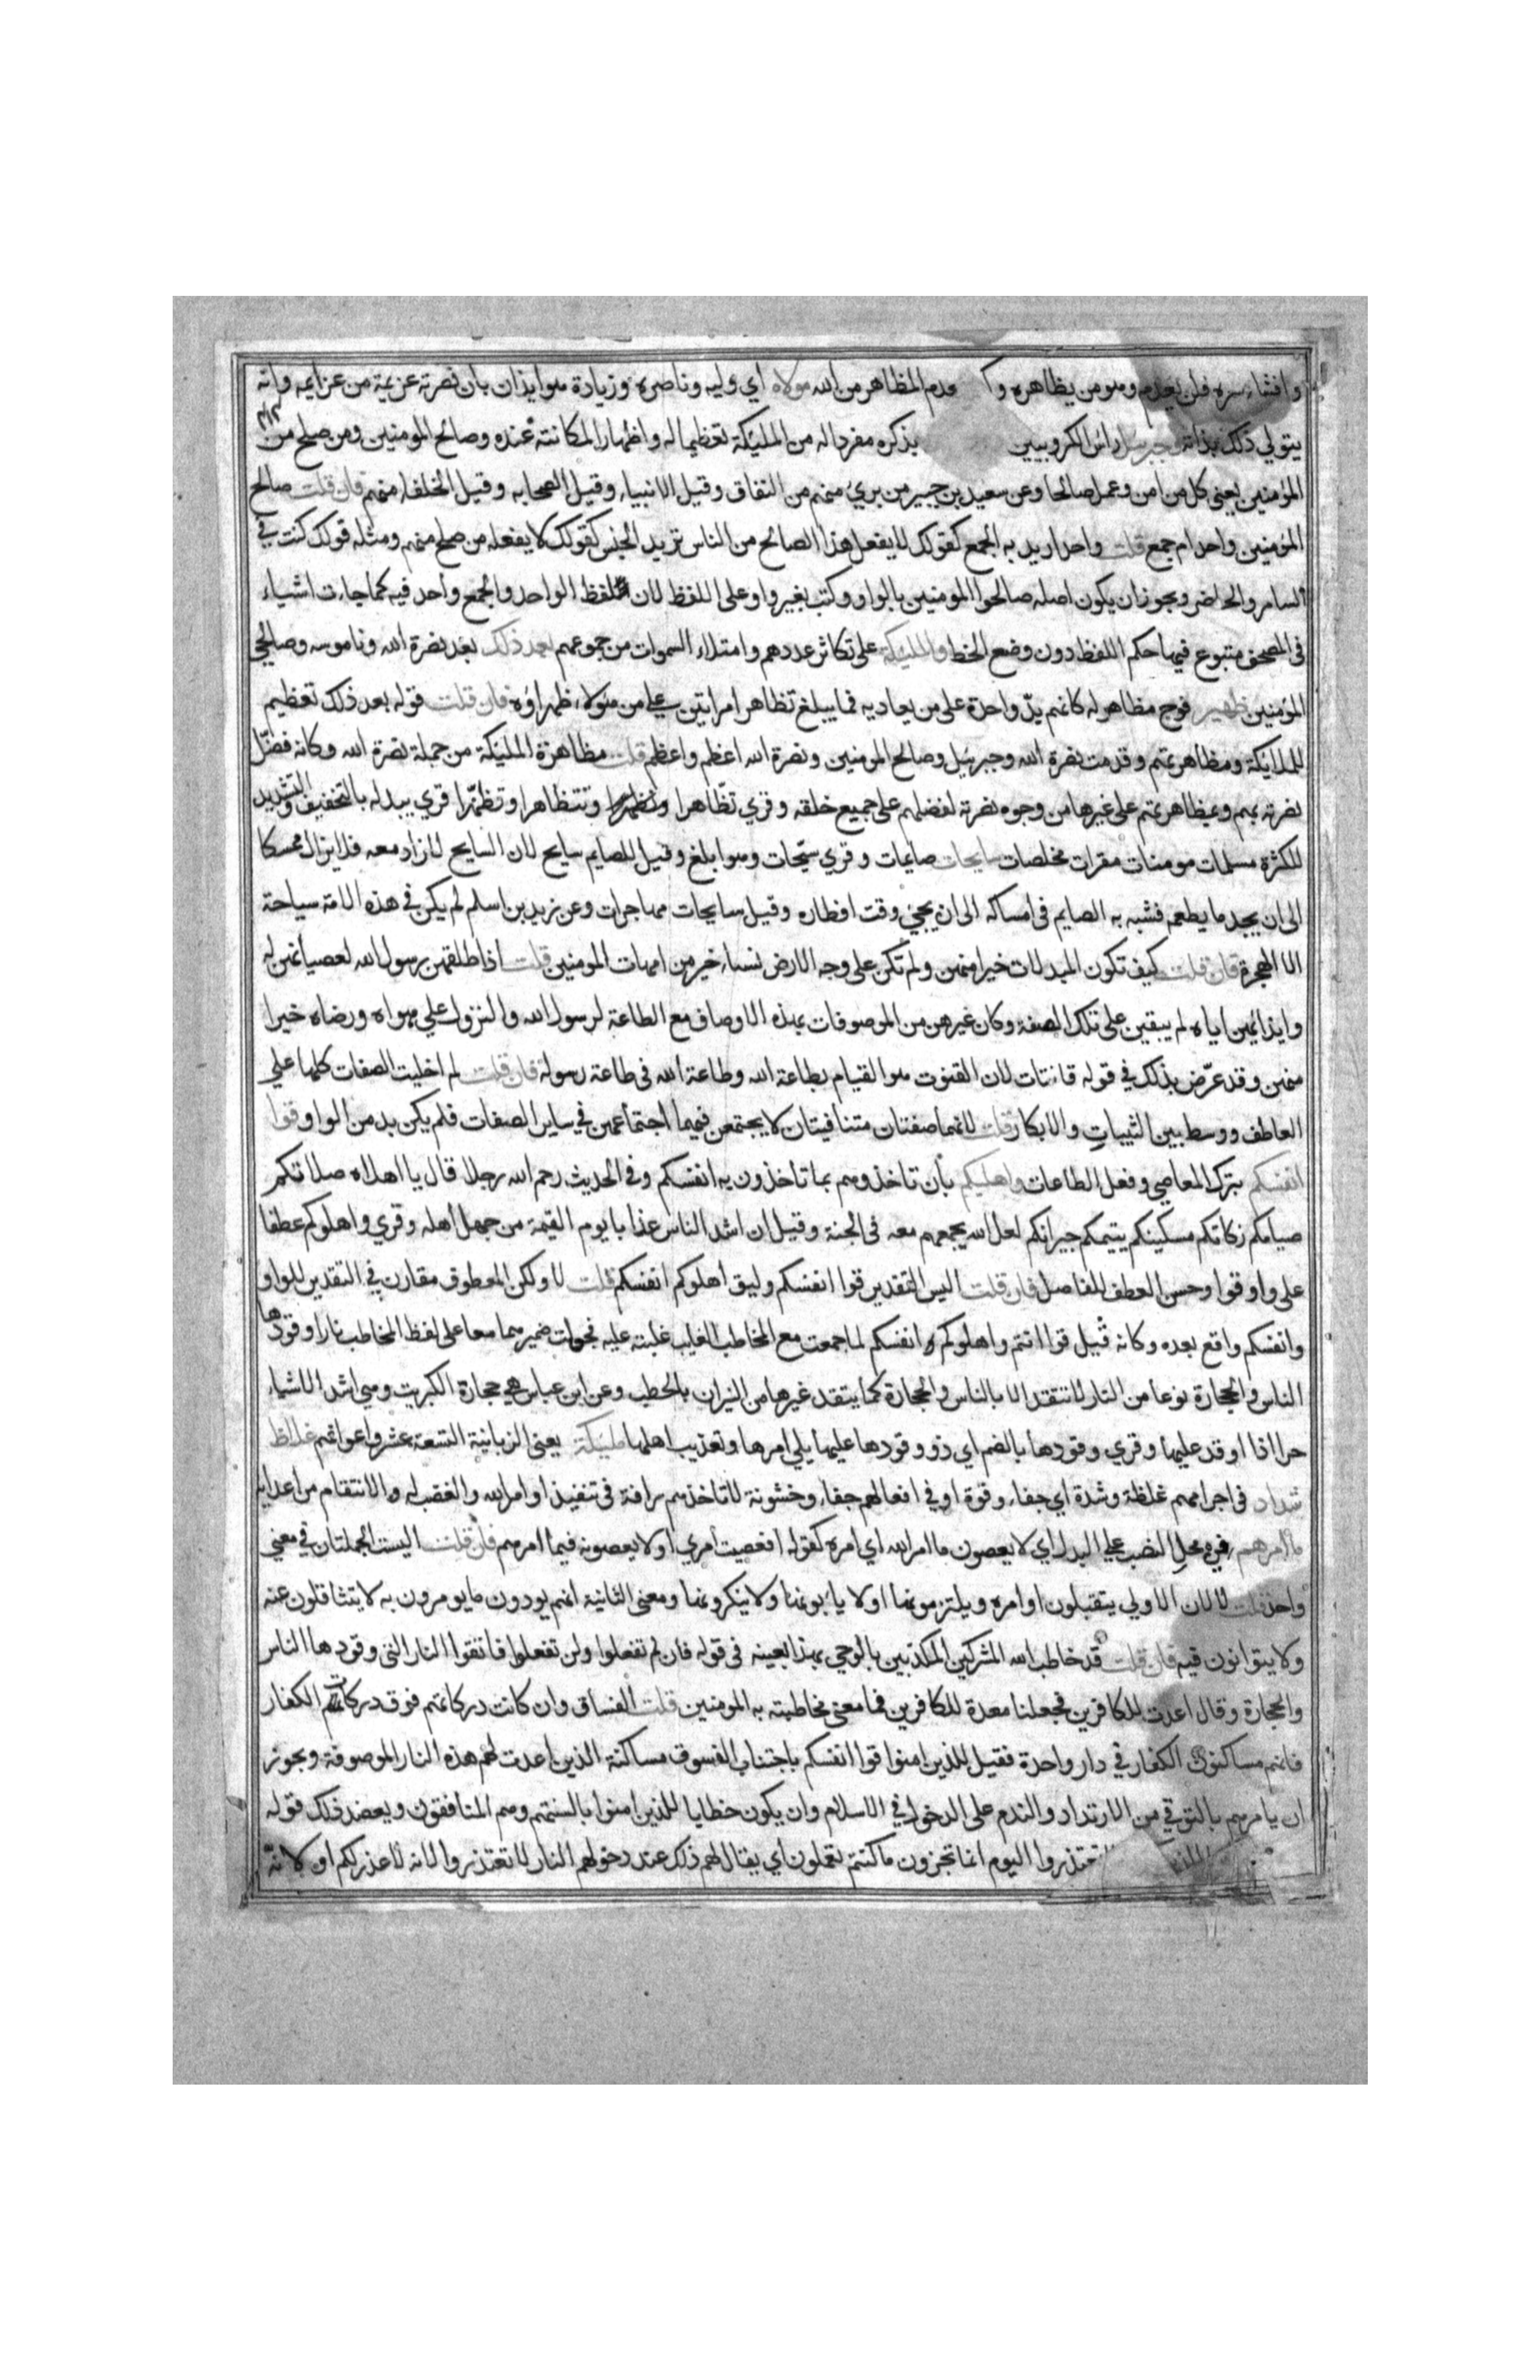 وافشاء سره فلن يعدم هو من يظاهره وا وعدم المظاهر من الله مولاه اي وليه وناصره وزيادة هو ايذان بان نصرته عزيمة من عزايمه وانه
يتولي ذلك بذاته وجبريل راس الكروبيين بذكره مفردا له من المليكة تعظيما له واظهارا لمكانته عنده وصالح المومنين ومن صلح من
المؤمنين يعنى كل من امن وعمل صالحا وعن سعيد بن جبير من بري منهم من النفاق وقيل الانبياء وقيل الصحابه وقيل الخلفاء منهم فان قلت صالح
المؤمنين واحد ام جمع قلت واحد اريد به الجمع كقولك لا يفعل هذا الصالح من الناس تريد الجنس كقولك لا يفعله من صلح منهم ومثله قولك كنت في
السامر والحاضر ويجوز ان يكون اصله صالحوا المومنين بالواو وكتب بغير واو على اللفظ لان لفظ الواحد والجمع واحد فيه كما جاءت اشياء
فى المصحف متبوع فيها حكم اللفظ دون وضع الخط والمليكة على تكاثر عددهم وامتلاء السموات من جموعهم بعد ذلك بعد نصرة الله وناموسه وصالحي
المؤمنين ظهير فوج مظاهر له كانهم يد واحدة على من يعاديه فما يبلغ تظاهر امراتين علي من هولاء ظهراؤه فان قلت قوله بعد ذلك تعظيم
للملايكة ومظاهرتهم وقدمت نصرة الله وجبرئيل وصالح المومنين ونصرة الله اعظم واعظم قلت مظاهرة المليكة من جملة نصرة الله وكانه فضل
نصرته بهم وبمظاهرتهم على غيرها من وجوه نصرته لفضلهم على جميع خلقه وقري تظاهرا وتتظاهرا وتظهرا قري يبدله بالتخفيف والتشديد
للكثرة مسلمات مومنات مقرات مخلصات سايحات صايمات وقري سيحات وهو ابلغ وقيل للصايم سايح لان السايح لا زاد معه فلا يزال ممسكا
الى ان يجد ما يطعمه فشبه به الصايم فى امساكه الى ان يجئ وقت افطاره وقيل سايحات مهاجرات وعن زيد بن اسلم لم يكن في هذه الامة سياحة
الا الهجرة فان قلت كيف تكون المبدلات خيرا منهن ولم تكن على وجه الارض نساء خير من امهات المومنين قلت اذا طلقهن رسول الله لعصيانهن له
وايذائهن اياه لم يبقين على تلك الصفة وكان غيرهن من الموصوفات بهذه الاوصاف مع الطاعة لرسول الله والنزول علي هواه ورضاه خيرا
منهن وقد عرض بذلك في قوله قانتات لان القنوت هو القيام بطاعة الله وطاعة الله فى طاعة رسوله فان قلت لم اخليت الصفات كلها علي
العاطف ووسط بين الثيبات والابكار قلت لانهما صفتان متنافيتان لا يجتمعن فيهما اجتماعهن في ساير الصفات فلم يكن بد من الواو قوا
انفسكم بترك المعاصي وفعل الطاعات واهليكم بان تاخذوهم بما تاخذون به انفسكم وفي الحديث رحم الله رجلا قال يا اهلاه صلاتكم
صيامكم زكاتكم مسكينكم يتيمكم جيرانكم لعل الله يجمعهم معه فى الجنة وقيل ان اشد الناس عذابا يوم القيمة من جهل اهله وقري واهلوكم عطفا
على واو قوا وحسن العطف للفاصل فان قلت اليس التقدير قوا انفسكم وليق اهلوكم انفسكم قلت لا ولكن المعطوف مقارن في التقدير للواو
وانفسكم واقع بعده وكانه قيل قوا انتم واهلوكم انفسكم لما جمعت مع المخاطب الغايب غلبته عليه فجعلت ضميرهما معا على لفظ المخاطب نارا وقودها
الناس والحجارة نوعا من النار لا تتقد الا بالناس والحجارة كما يتقد غيرها من النيران بالحطب وعن ابن عباس هي حجارة الكبريت وهي اشد الاشياء
حرا اذا اوقد عليها وقري وقودها بالضم اي ذو وقودها عليها يلي امرها وتعذيب اهلها مليكة يعنى الزبانية التسعة عشر واعوانهم غلاظ
شداد فى اجرامهم غلظة وشدة اي جفاء وقوة او في افعالهم جفاء وخشونة لا تاخذهم رافة فى تنفيذ اوامر الله والغضب له والانتقام من اعدايه
ما امرهم في محل النصب علي البدل اي لا يعصون ما امر الله اي امره كقوله افعصيت امري او لا يعصونه فيما امرهم فان قلت اليست الجملتان في معني
واحد قلت لا لان الاولي يتقبلون اوامره ويلتزمونها اولا يابونها ولا ينكرونها ومعنى الثانية انهم يودون ما يومرون به لا يتثاقلون عنه
ولا يتوانون فيه فان قلت قد خاطب الله المشركين المكذبين بالوحي بهذا بعينه فى قوله فان لم تفعلوا ولن تفعلوا فاتقوا النار التى وقودها الناس
والحجارة وقال اعدت للكافرين فجعلنا معدة للكافرين فما معنى مخاطبته به المومنين قلت الفساق وان كانت دركاتهم فوق دركات الكفار
فانهم مساكنون الكفار في دار واحدة فقيل للذين امنوا قوا انفسكم باجتناب الفسوق مساكنة الذين اعدت لهم هذه النار الموصوفة ويجوز
ان يامرهم بالتوقي من الارتداد والندم على الدخول في الاسلام وان يكون خطابا للذين امنوا بالسنتهم وهم المنافقون ويعضد ذلك قوله
تعتذروا اليوم انما تجزون ما كنتم تعملون اي يقال لهم ذلك عند دخولهم النار لا تعتذروا لانه لا عذر لكم او لانه